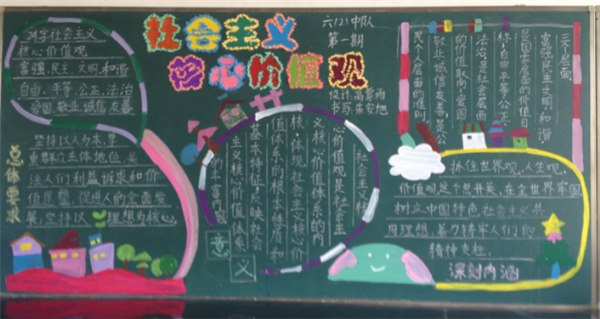 社会主义
核心价值观
六(2)中队
第一期
社会主义
核心价值观
富强、民主、文明、和谐
自由、平等、公正、法治
爱国、敬业、诚信、友善
总体要求
坚持以人为本,尊
重群众主体地位,关
注人们利益诉求和价
值愿望,促进人的全面发
展;坚持以
理想为核心,
社会主义核
心价值观是社会主
义核心价值体系的内
核,体现社会主义核心价
值体系的根本性质和
基本特征,反映社会
主义核心价值体系
的丰富内涵
意义
三个层面
富强民主文明和谐
是国家层面的价值目
标,自由平等公正
法治是社会层面
的价值取向,爱国
敬业诚信友善是公
民个人层面的准则。
抓住世界观、人生观、
价值观这个总开关,在全世界牢固
树立中国特色社会主义共
同理想,着力铸牢人们的
精神支柱。
深刻内涵